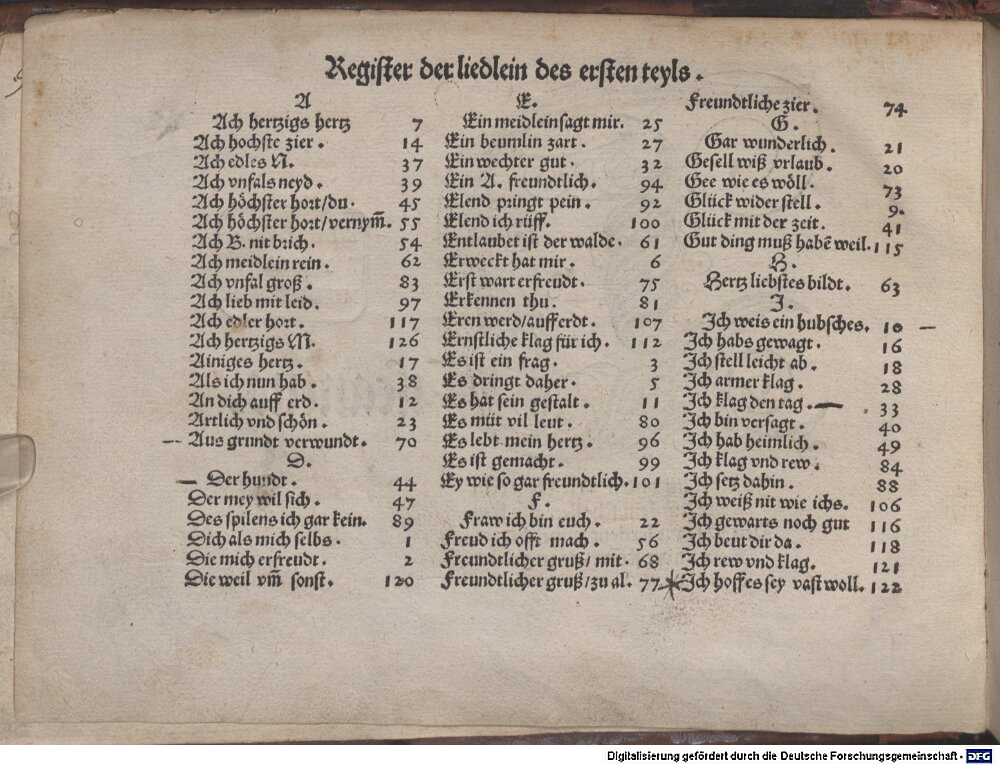 Register der liedlein des ersten teyls.
A
Ach hertzigs hertz 7
Ach hochste zier. 14
Ach edles N. 37
Ach vnfals neyd. 39
Ach höchster hort/du. 45
Ach höchster hort/vernym̃. 55
Ach B. nit brich. 54
Ach meidlein rein. 62
Ach vnfal groß. 83
Ach lieb mit leid. 97
Ach edler hort. 117
Ach hertzigs M. 126
Ainiges hertz. 17
Als ich nun hab. 38
An dich auff erd. 12
Artlich vnd schön. 23
Aus grundt verwundt. 70
D.
Der hundt. 44
Der mey wil sich. 47
Des spilens ich gar kein. 89
Dich als mich selbs. 1
Die mich erfreudt. 2
Die weil vm̃ sonst. 120
E.
Ein meidlein sagt mir. 25
Ein beumlin zart. 27
Ein wechter gut. 32
Ein A. freundtlich. 94
Elend pringt pein. 92
Elend ich rüff. 100
Entlaubet ist der walde. 61
Erweckt hat mir. 6
Erst wart erfreudt. 75
Erkennen thu. 81
Eren werd/auff erdt. 107
Ernstliche klag für ich. 112
Es ist ein frag. 3
Es dringt daher. 5
Es hat sein gestalt. 11
Es müt vil leut. 80
Es lebt mein hertz. 96
Es ist gemacht. 99
Ey wie so gar freundtlich. 101
F.
Fraw ich bin euch. 22
Freud ich offt mach. 56
Freundtlicher gruß/mit. 68
Freundtlicher gruß/zu al. 77
Freundtliche zier. 74
G.
Gar wunderlich. 21
Gesell wiß vrlaub. 20
Gee wie es wöll. 73
Glück wider stell. 9.
Glück mit der zeit. 41
Gut ding muß habẽ weil. 115
H.
Hertz liebstes bildt. 63
I.
Ich weis ein hubsches. 10
Ich habs gewagt. 16
Ich stell leicht ab. 18
Ich armer klag. 28
Ich klag den tag. 33
Ich bin versagt. 40
Ich hab heimlich. 49
Ich klag vnd rew. 84
Ich setz dahin. 88
Ich weiß nit wie ichs. 106
Ich gewarts noch gut 116
Ich beut dir da. 118
Ich rew vnd klag. 121
Ich hoff es sey vast woll. 122
Digitalisierung gefördert durch die Deutsche Forschungsgemeinschaft - DFG